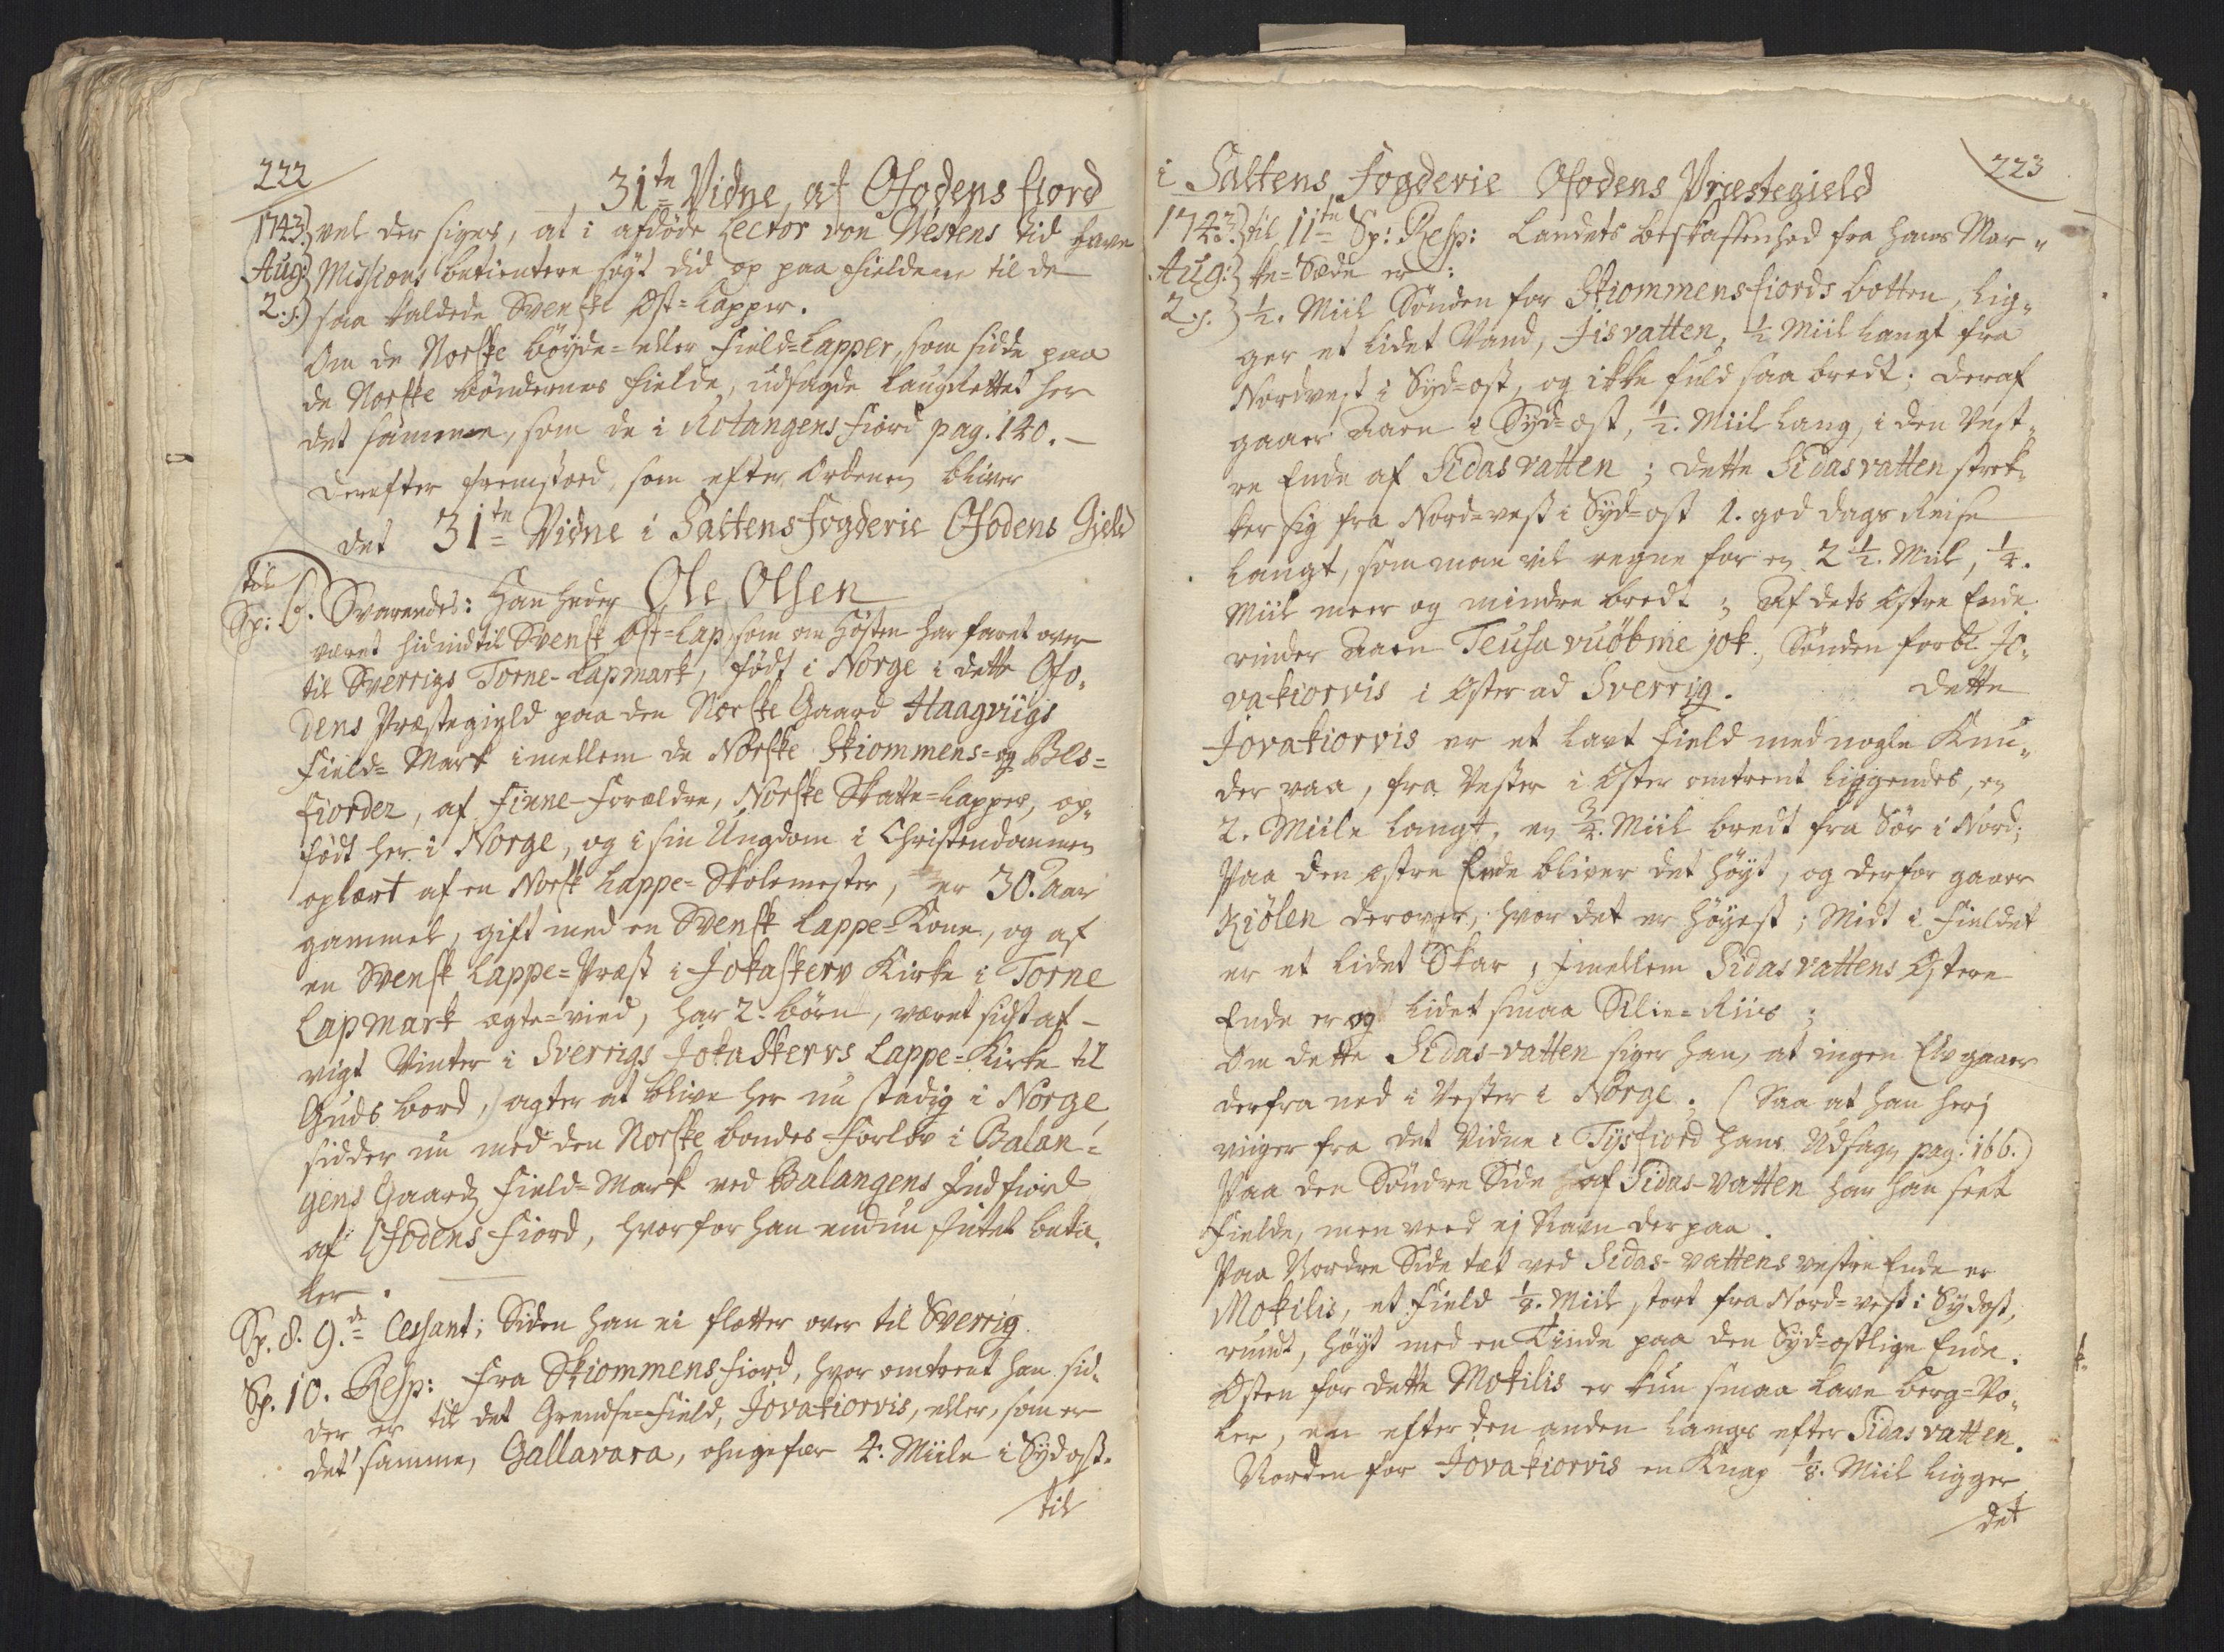 222
31te Vidne, af Ofodens fiord
1743. vel der siges, at i afdöde Lector von Westens tid have
Aug: Missions betientere søgt did op paa fieldene til de
2.s. saa kaldede Svenske Øst-Lapper.
Om de Norske bøyde- eller Field-Lapper, som sidde paa
de Norske bøndernes fielde, udsagde Laugrettet her
det samme, som de i Rotangens fiord pag. 140.
Derefter fremstoed, som efter Ordenen bliver
det 31te Vidne i Saltens fogderie Ofodens Gield
til
Sp: 6. Svarendes: Han heder Ole Olsen
været hidindtil Svensk Øst-Lap, som om Høsten har faret over
til Sverrigs Torne-Lapmark, født i Norge i dette Ofo-
dens Præstegield paa den Norske Gaard Haagviigs
Field-Mark imellem de Norske Skiommens- og Beis-
fiorder, af Finne-Forældre, Norske Skatte-Lapper, op-
födt her i Norge, og i sin Ungdom i Christendommen
oplært af en Norsk Lappe-Skolemester, er 30. Aar
gammel, gift med en Svensk Lappe-Kone, og af
en Svensk Lappe-Præst i Jokaskerv Kirke i Torne
Lapmark ægte-vied, har 2. børn, været sidst af-
vigt Vinter i Sverrigs Jokaskervs Lappe-Kirke til
Guds bord, agter at blive her nu stadig i Norge,
sidder nu med den Norske bondes forlov i Balan-
gens Gaards Field-Mark ved Balangens Indfiord
af Ofodens Fiord, hvorfor han endnu intet beta-
ler.
Sp. 8. 9.de Cessant; Siden han ei flotter over til Sverrig.
Sp. 10. Resp: Fra Skiommens fiord, hvor omtrent han sid-
der er til det Grendse-Field, Jovakiorvis, eller, som er
det samme, Gallavara, ohngefær 4. Miile i Sydost.
til
223
i Saltens Fogderie Ofodens Præstegield
1743. til 11te Sp: Resp: Landets beskaffenhed fra hans Mar-
Aug: ke-Sæde er:
2.s. ½. Miil Sønden for Skiommensfiords botten, lig-
ger et lidet Vand, Jisvatten, ½ Miil langt fra
Nordvest i Syd-ost, og ikke fuld saa bredt; deraf
gaaer Aaen i Syd-ost, ½. Miil lang, i den Vest-
re Ende af Sidasvatten; dette Sidasvatten strek-
ker sig fra Nord-vest i Syd-ost 1. god dags Reise
langt, som man vil regne for en 2½. Miil, ¼.
Miil meer og mindre bredt; Af dets Østre Ende
rinder Aaen Teusavuöbme jok, Sønden forbi Jo-
vakiorvis i Øster ad Sverrig. dette
Jovakiorvis er et lavt Field med nogle Knu-
der paa, fra Vester i Øster omtrent liggendes, en
2. Miile langt, en ¾. Miil bredt fra Sør i Nord;
Paa den østre Ende bliver det høyt, og derfor gaaer
Kiölen derover, hvor det er høyest; Midt i Fieldet
er et lidet Skar, imellem Sidasvattens Østere
Ende er og lidet smaa Silie-Riis;
Om dette Sidas-vatten siger han, at ingen Elv gaaer
derfra ned i Vester i Norge. (Saa at han herj
viiger fra det Vidne i Tysfiord hans Udsagn pag. 166.)
Paa den Søndre Side af Sidas-vatten har han seet
Fielde, men veed ej Navn derpaa.
Paa Nordre Side tæt ved Sidas-vattens vestre Ende er
Mokilis, et Field ⅛. Miil stort fra Nord-vest i Sydost,
rundt, høyt med en Tinde paa den Syd-ostlige Ende.
Østen for dette Mokilis er kun smaa lave berg-Vo-
ler, en efter den anden langs efter Sidasvatten.
Norden for Jovakiorvis en Knap ⅛. Miil ligger
det